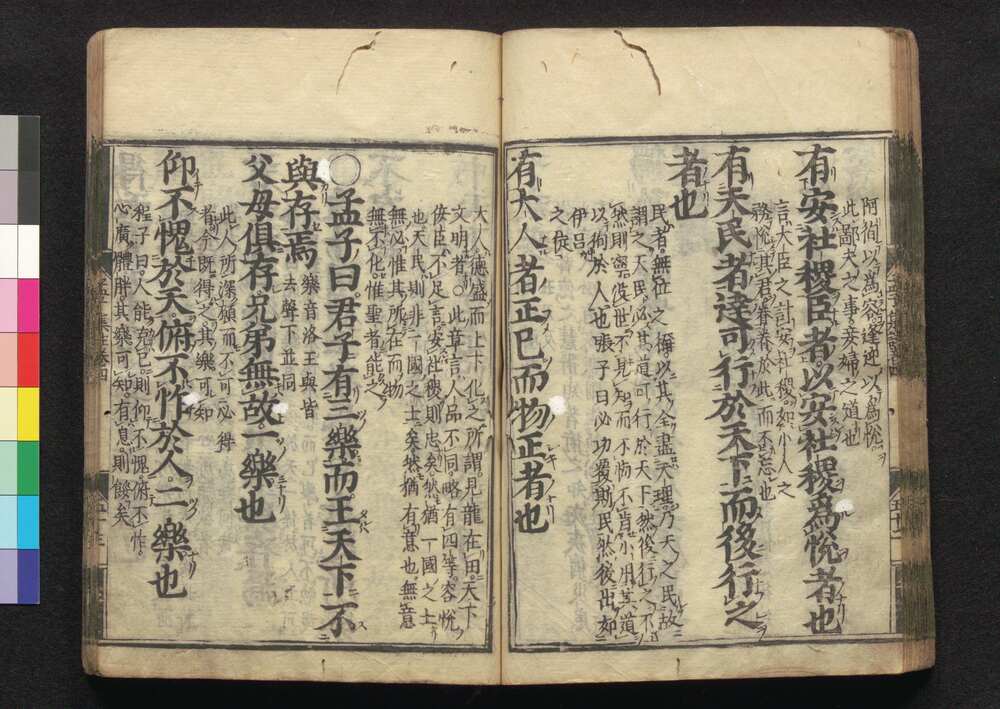 阿徇以為容逢迎以為悅
此鄙夫之事妾婦之道也
有安社稷臣者以安社稷為悅者也
言大臣之計安社稷如小人之
務悅其君眷眷於此而不忘也
有天民者達可行於天下而後行之
者也
民者無位之稱以其全盡天理乃天之民故
謂之天民必其道可行於天下然後行之不
然則寧沒世不見知而不悔不肯小用其道
以徇於人也張子曰必功覆斯民然後出如
伊呂
之徒
有大人者正己而物正者也
大人德盛而上下化之所謂見龍在田天下
文明者○此章言人品不同略有四等容悅
佞臣不足言安社稷則忠矣然猶一國之士
也天民則非一國之士矣然猶有意也無意
無必惟其所在而物
無不化惟聖者能之
○孟子曰君子有三樂而王天下不
與存焉
樂音洛王與皆
去聲下並同
父母俱存兄弟無故一樂也
此人所深願而不可必得
者今既得之其樂可知
仰不愧於天俯不怍於人二樂也
程子曰人能克己則仰不愧俯不怍
心廣體胖其樂可知有息則餒矣